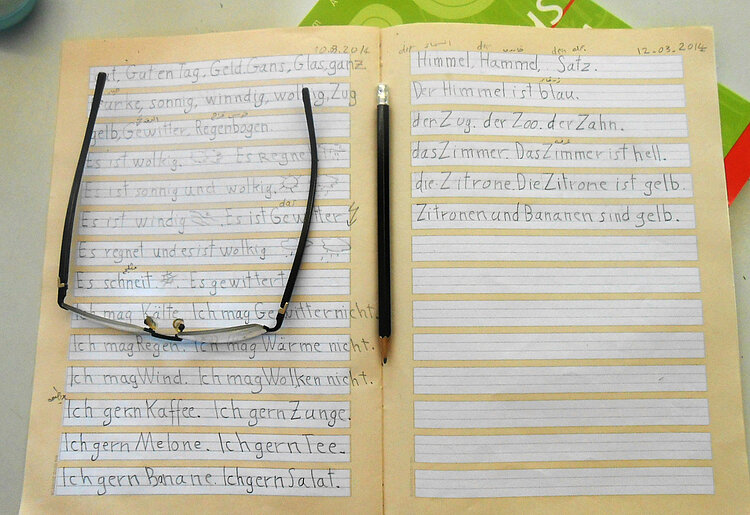 10.3.2014
Guten Tag, Geld Gans, Glas, ganz
sonnig, winndig, Zug
gelb, Gewitter, Regenbogen.
Es ist wolkig. Es Regnet
Es ist sonnig und wolkig.
das
Es ist windig. Es ist Gewitter
Es regnet und es ist wolkig
Es schneit. Es gewittert
Ich mag Kälte. Ich mag Gewitter nicht.
Ich mag Regen. Ich mag Wärme nicht.
Ich mag Wind. Ich mag Wolken nicht.
Ich gern Kaffee. Ich gern Zunge.
Ich gern Melone. Ich gern Tee.
Ich gern Banane. Ich gern Salat.
der der den 12.03.2014
Himmel, Hammel, Satz.
Der Himmel ist blau.
der Zug. der Zoo. der Zahn.
das Zimmer. Das Zimmer ist hell.
die Zitrone. Die Zitrone ist gelb.
Zitronen und Bananen sind gelb.